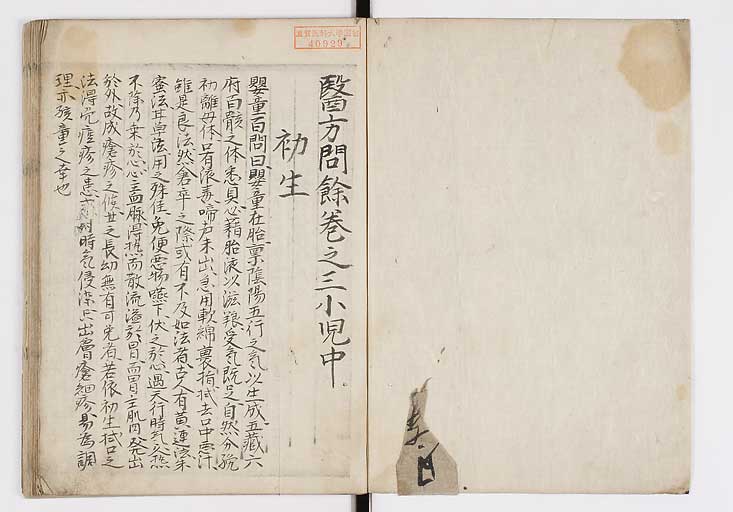 滋賀医科大学図書
40929
醫方問餘巻之三小児中
初生
嬰童百問曰嬰童在胎稟陰陽五行之氣以生成五藏六
府百骸之体悉具必藉胎液以滋養受氣既足自然分娩
初離母体口有液毒啼声未出急用軟綿裹指拭去口中悪汁
雖是良法然倉卒之際或有不及如法者古人有黄連法朱
蜜法甘草法用之殊佳免便悪物嚥下伏之於心遇天行時氣久熱
不除乃乗於心心主血脉得熱而散流溢於胃而胃主肌肉発出
於外故成瘡疹之候世之長幼無有可免者若依初生拭口之
法得免痘疹之患或时時氣侵染只出膚瘡細疹易為調
理亦孩童之幸也